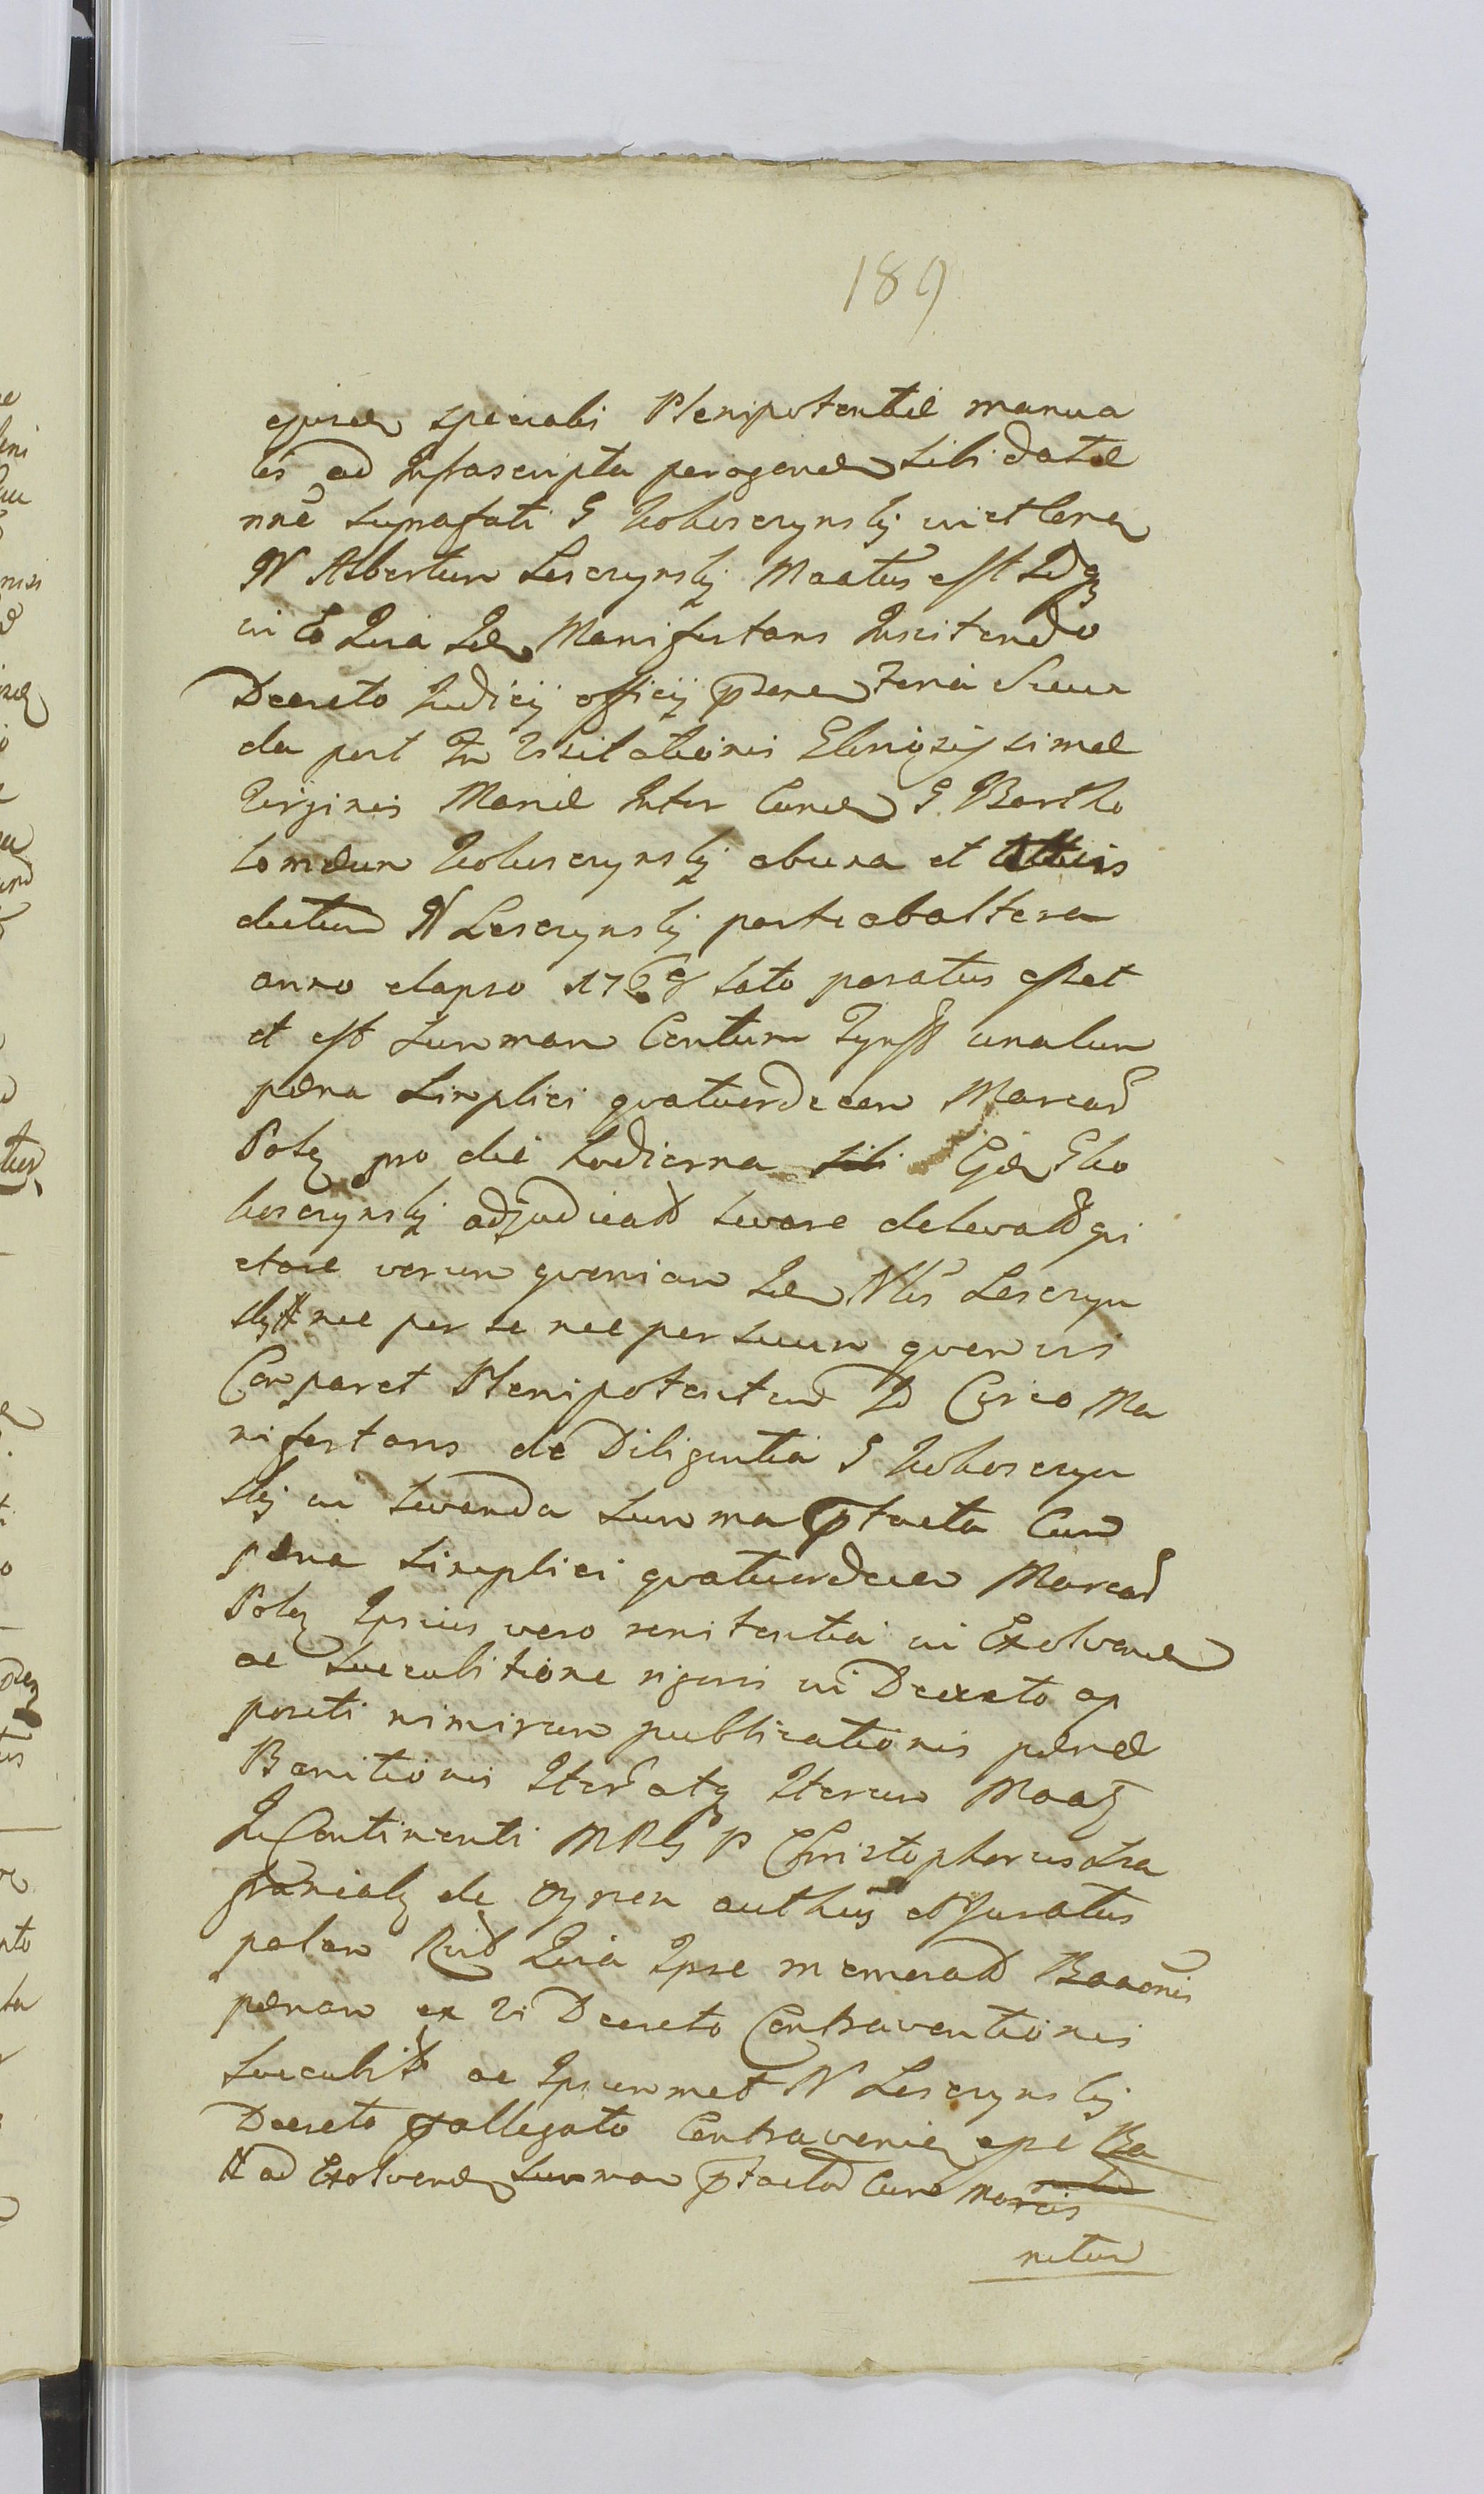 189
ejusd specialis Plenipotentiæ manua
lis ad Infrascripta peragend sibi datæ
nne suprafati G Woluszynskij in et cona
N Albertum Leszczynskij Maatus est Idq
in Eo Quia Id Manifestans Insistendo
Decreto Judicij officij prsen feria Secun
da post Fm Visitationis Gloriosissimæ
Virginis Mariæ Inter Eund G. Bartho
lomæum Woluszynskij ab una et
dictum N Leszczynskij parte ab altera
anno elapso 1768 lato paratus esset
et est summam Centum Tynff una cum
pæna simplici quatuordecem Marcar
Polq pro die hodierna sibi Gd Gwo
luszynskij adjudicat levare delevat qui
etare verum quoniam Id Nlis Leszczyn
skij nec per se nec per suum quemvis
Comparet Plenipotentum Id Circo Ma
nifestans de Diligentia G Woluszyn
skij in levanda summa prtacta Cum
pæna simplici quatuordecem Marcar
Polq Ipsius vero renitentia in Exolvend
ac succubitione rigoris in Decreto ap
positi nimirum publicationis pænæ
Banitionis Iter atq Iterum Maatq
In Continenti MRG P Christophorus
de auths et Juratus
palam Rcd Quia Ipse memorat Baaonis
pænam ex vi Decreto Contraventionis
succubit ac Ipsummet N Leszczynskij
Decreto prallegato Contravenien
ad Exolvend summam prtactam Cum Marcis
nitum